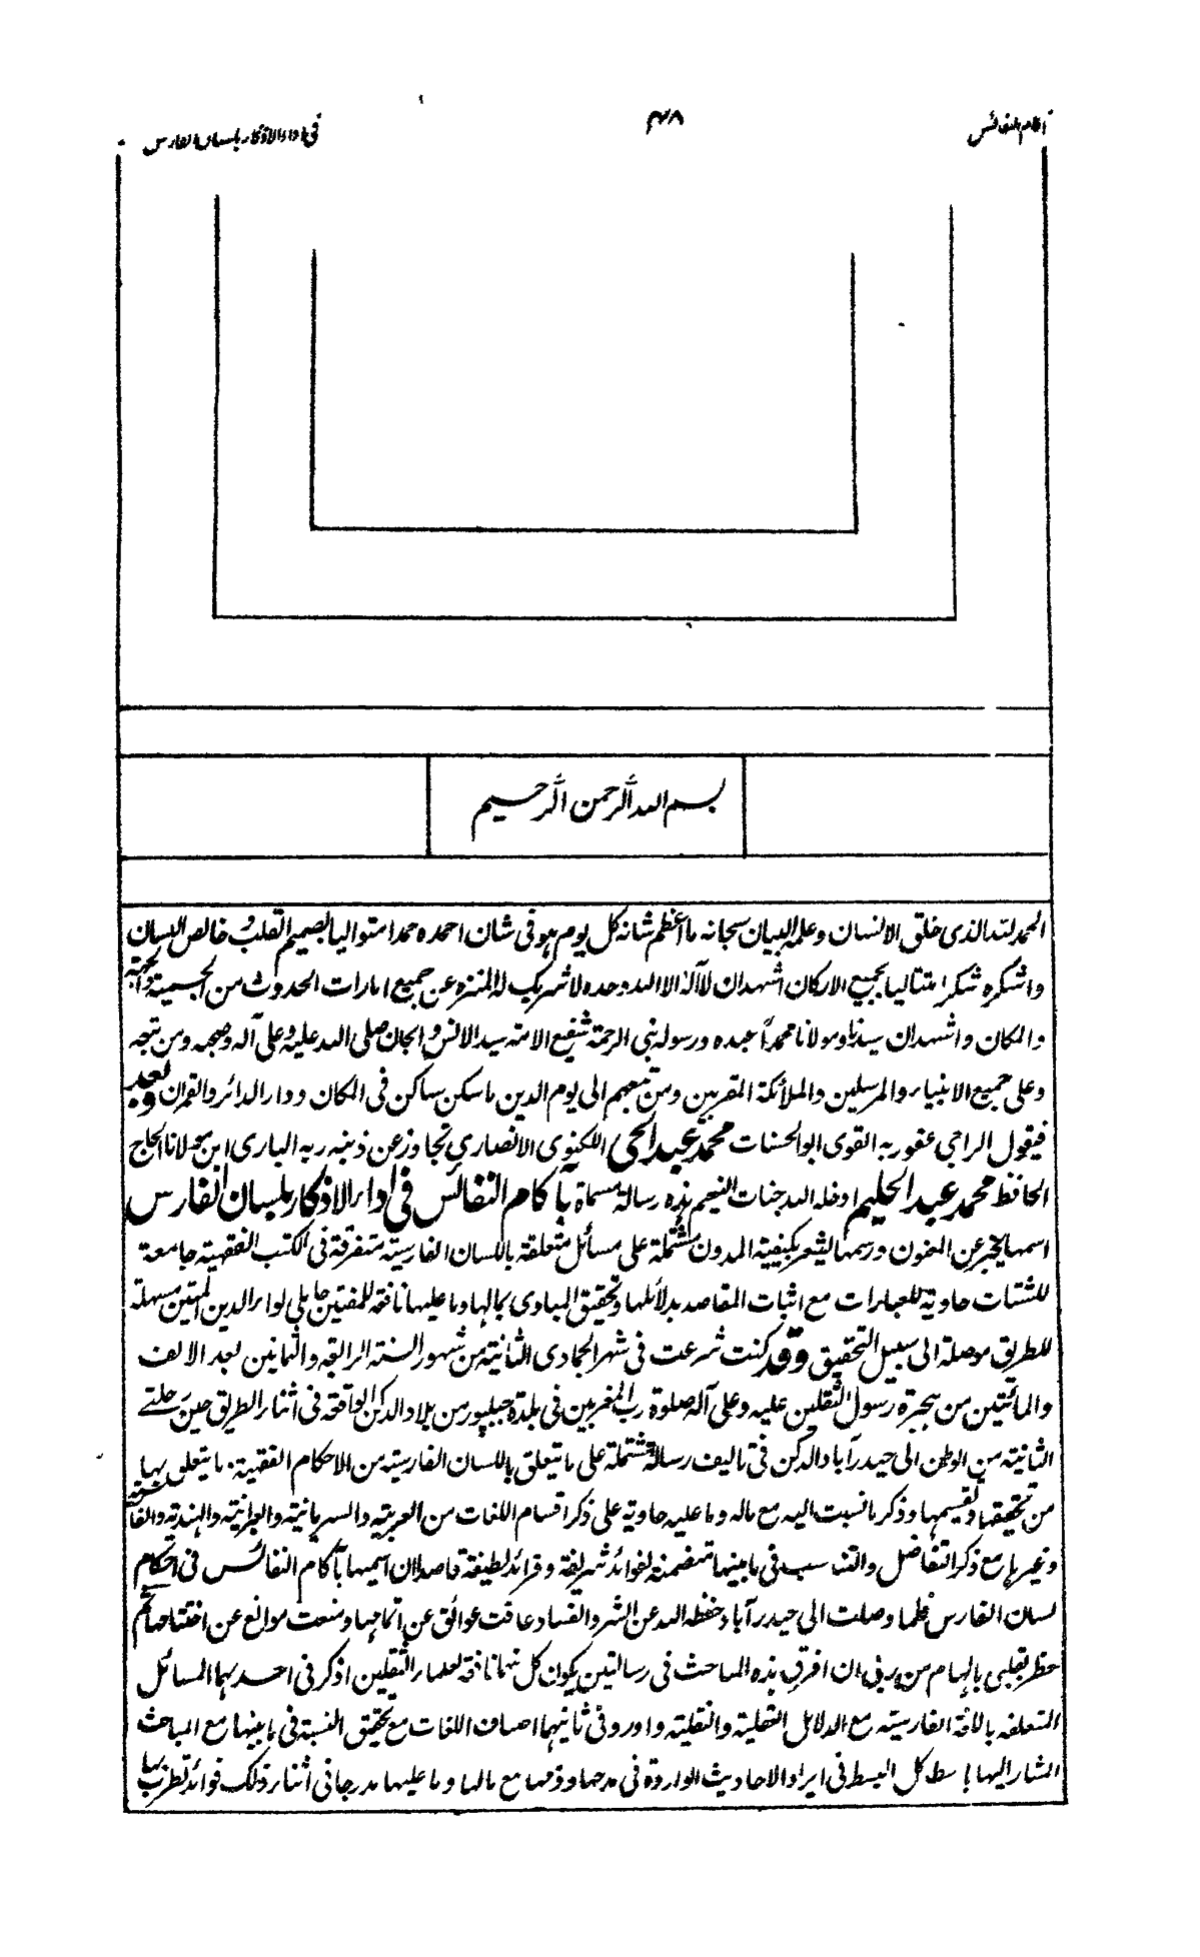 آكام النفائس
٣٨
فى اداء الاذكار بلسان الفارس
بسم الله الرحمن الرحيم
الحمد لله الذى خلق الانسان وعلمه البيان سبحانه ما اعظم شانه كل يوم هو فى شان احمده حمدا متواليا بصميم القلب وخالص اللسان
واشكره شكرا متتاليا بجميع الاركان اشهد ان لا آله الا الله وحده لا شريك له المنزه عن جميع امارات الحدوث من الجسمية والجهة
والمكان واشهد ان سيدنا ومولانا محمداً عبده ورسوله نبى الرحمة شفيع الامة سيد الانس والجان صلى الله عليه وعلى آله وصحبه ومن تبعه
وعلى جميع الانبياء والمرسلين والملائكة المقربين ومن تبعهم الى يوم الدين ما سكن ساكن فى المكان ودار الدائر والقمران وبعد
فيقول الراجى عفو ربه القوى ابو الحسنات محمد عبد الحى اللكنوى الانصارى تجاوز عن ذنبه ربه البارى ابن مولانا الحاج
الحافظ محمد عبد الحليم ادخله الله جنات النعيم هذه رسالة مسماة بآكام النفائس فى اداء الاذكار بلسان الفارس
اسمها يخبر عن المعنون ورسمها يشعر بكيفية المدون مشتملة على مسائل متعلقة باللسان الفارسية متفرقة فى الكتب الفقهية جامعة
للشتات حاوية للعبارات مع اثبات المقاصد بدلائلها وتحقيق المبادى بمالها وما عليها نافعة للمفتين حاملى لواء الدين المتين مسهلة
للطريق موصلة الى سبيل التحقيق وقد كنت شرعت فى شهر الجمادى الثانية من شهور السنة الرابعة والثمانين بعد الالف
والمائتين من هجرة رسول الثقلين عليه وعلى آله صلوة رب المغربين فى بلدة جبلپور من بلاد الدكن الواقعة فى اثناء الطريق حين رحلتى
الثانية من الوطن الى حيدرآباد الدكن فى تاليف رسالة مشتملة على ما يتعلق باللسان الفارسية من الاحكام الفقهية ما يتعلق بها
من تحقيقها وتقسيمها وذكر ما نسبت اليه مع ماله وما عليه حاوية على ذكر اقسام اللغات من العربية والسريانية والعبرانية والهندية والفارسية
وغيرها مع ذكر التفاضل والتناسب فى ما بينها متضمنة لفوائد شريفة وفرائد لطيفة قاصدا ان اسميها بآكام النفائس فى احكام
لسان الفارس فلما وصلت الى حيدرآباد حفظه الله عن الشر والفساد عاقت عوائق عن اتمامها ومنعت موانع عن اختتامها ثم
خطر بقلبى بالهام من ربى ان افرق هذه المباحث فى رسالتين يكون كل منهما نافعة لعلماء الثقلين اذكر فى احدهما المسائل
المتعلقة باللغة الفارسية مع الدلائل العقلية والنقلية واورد فى ثانيهما اصناف اللغات مع تحقيق النسبة فى ما بينها مع المباحث
المشار اليها باسط كل البسط فى ايراد الاحاديث الواردة فى مدحها وذمها مع مالها وما عليها مدرجا فى اثناء ذلك فوائد تطرب بها